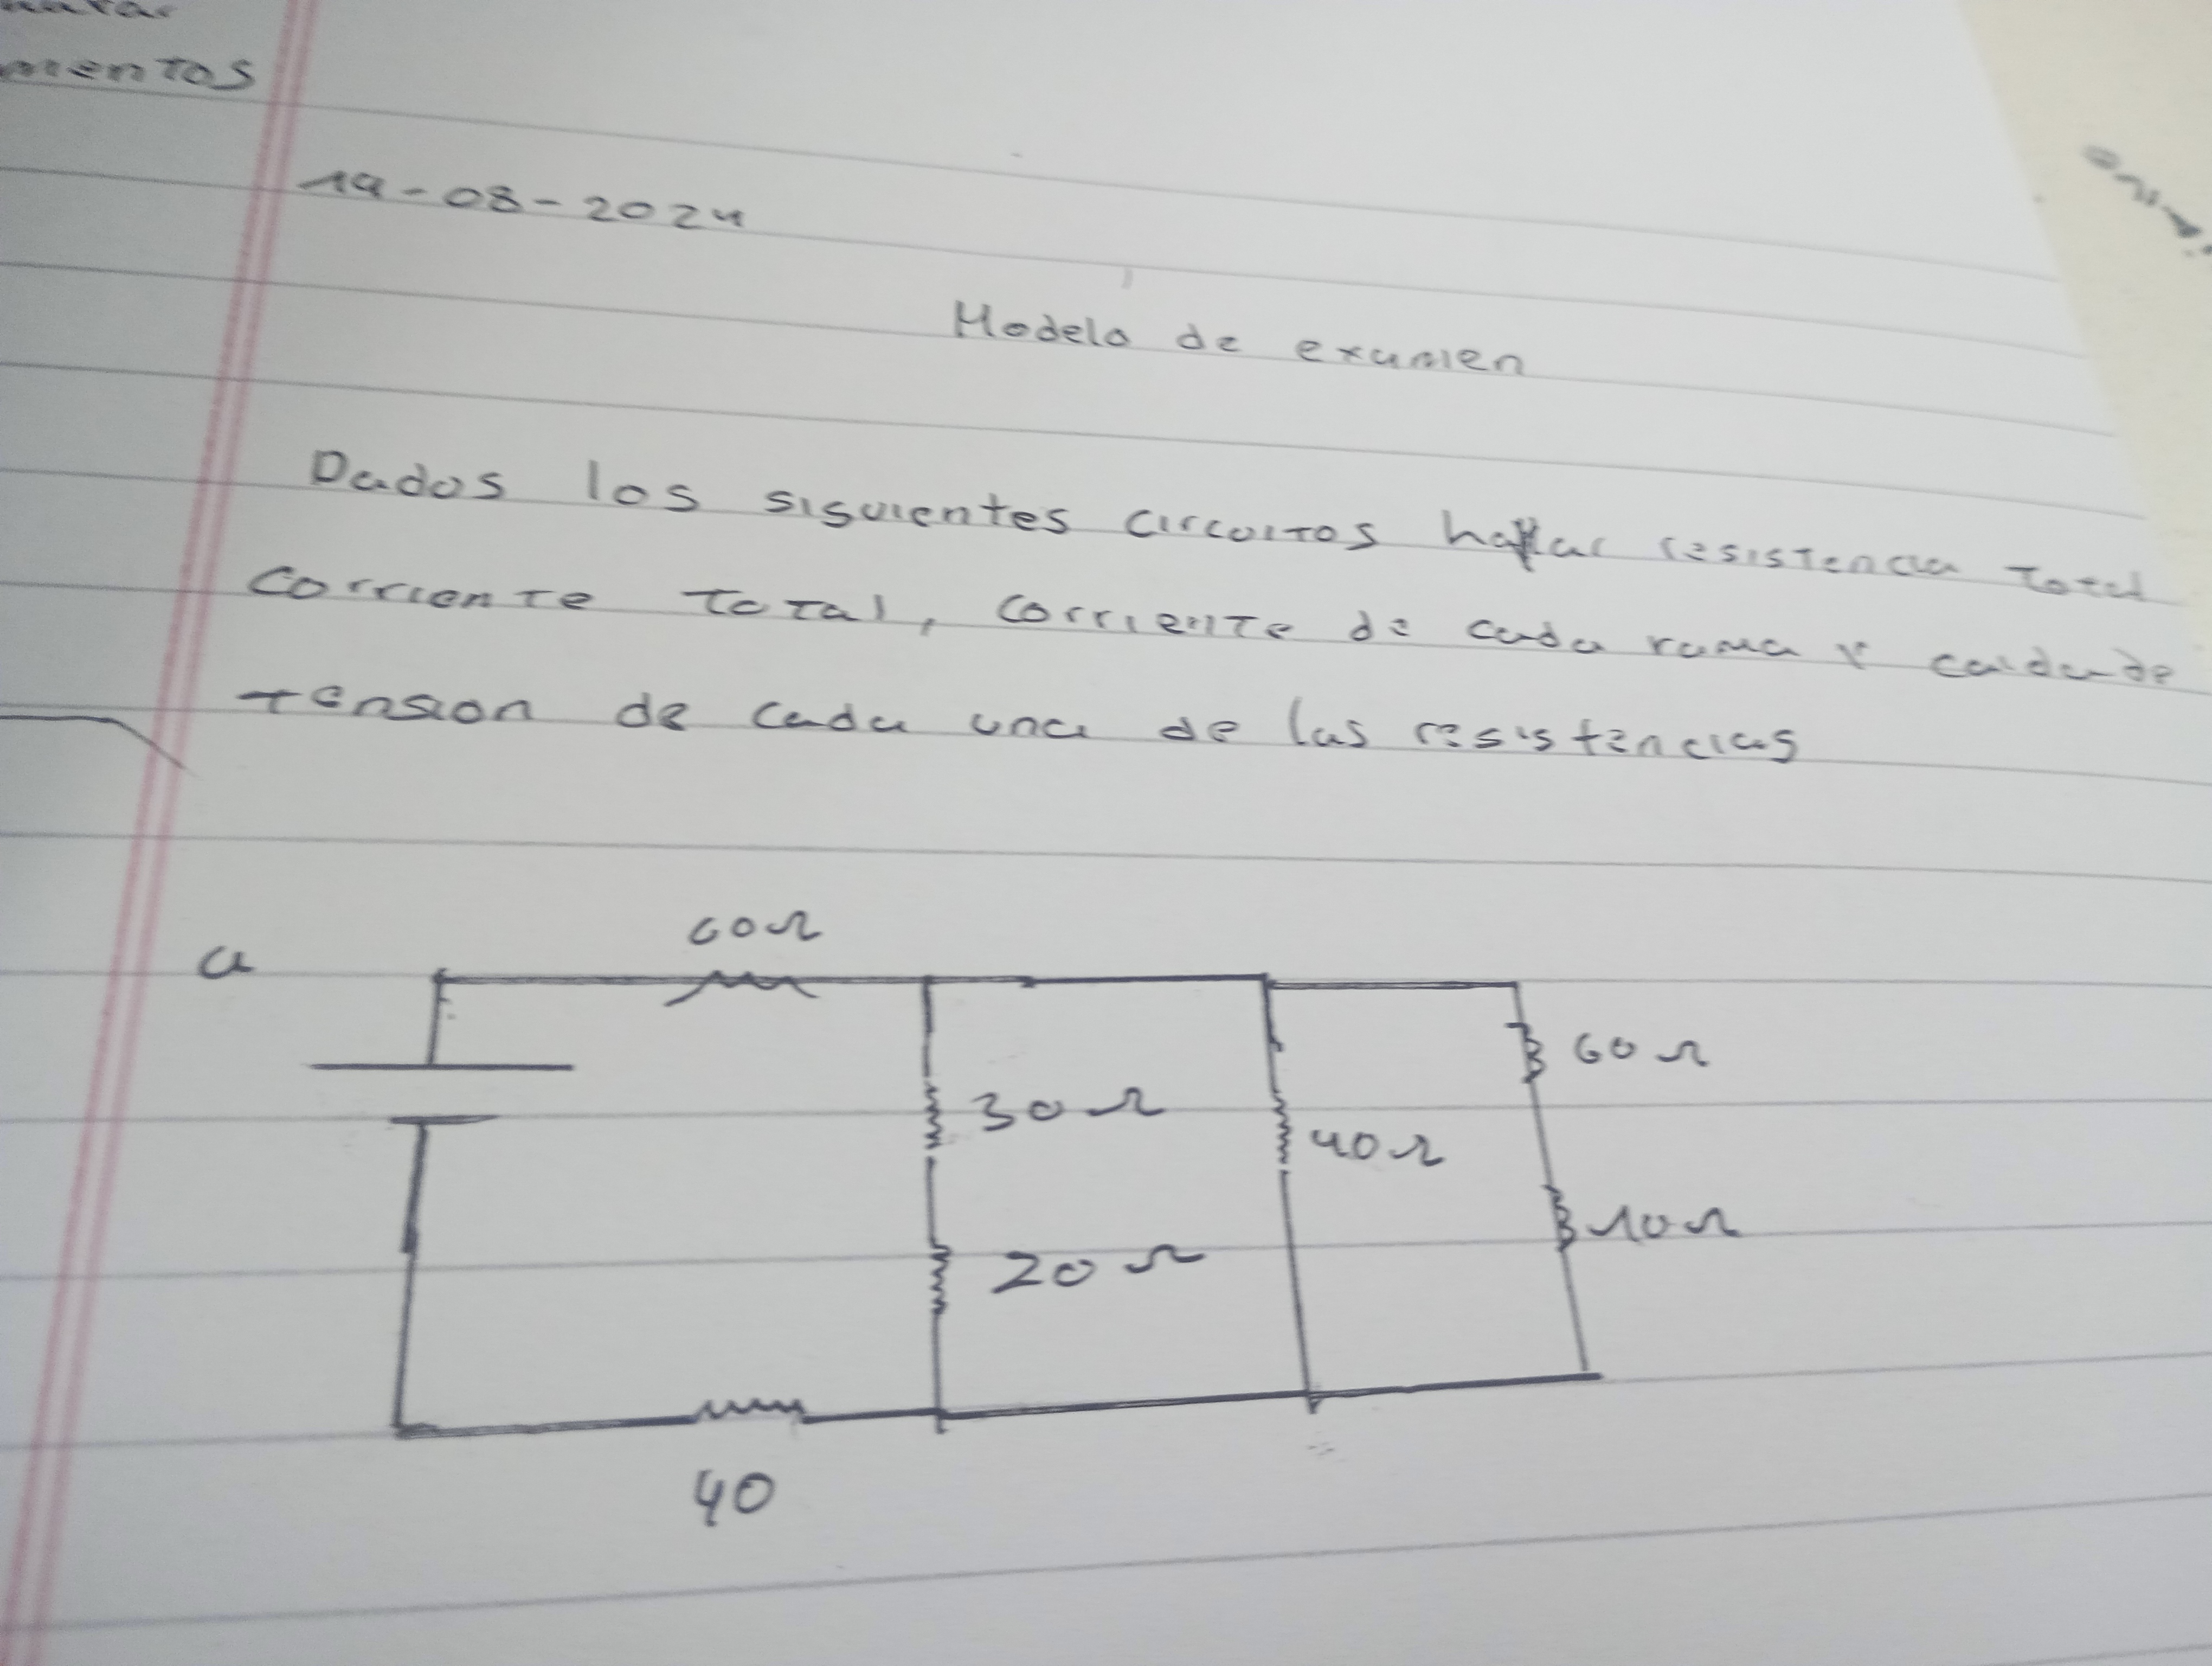 mentos
19-08-2024
Modelo de examen
Dados los siguientes circuitos hallar resistencia total
corriente total, corriente de cada rama y caida de
tension de cada una de las resistencias
a
60Ω
60Ω
30Ω
40Ω
10Ω
20Ω
40